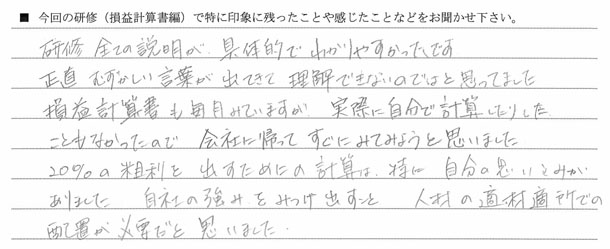 ■ 今回の研修（損益計算書編）で特に印象に残ったことや感じたことなどをお聞かせ下さい。
研修 全ての説明が、具体的で わかりやすかったです
正直 むずかしい言葉が 出てきて 理解できないのではと思ってました
損益計算書も毎月みていますが 実際に自分で計算したりした
こともなかったので 会社に帰って すぐにみてみようと思いました
20%の粗利を 出すためにの計算は、特に 自分の思いこみが
ありました 自社の強みをみつけ出すこと 人材の適材適所での
配置が必要だと思いました.